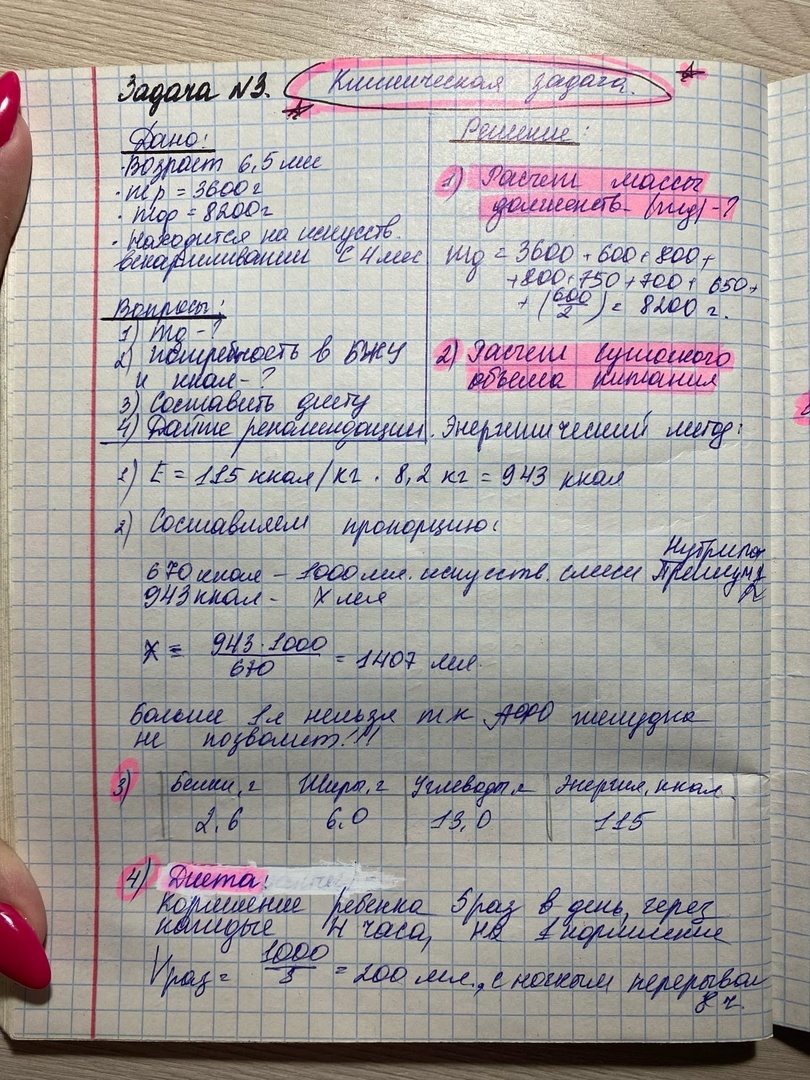 Задача №3. Клиническая задача.
Дано:
· Возраст 6,5 мес
· mр = 3600 г
· mф = 8200 г
· Находится на искусств.
вскармливании с 4 мес
Вопросы:
1) mд - ?
2) потребность в БЖУ
и ккал - ?
3) Составить диету
4) Дайте рекомендации.
Решение:
1) Расчет массы
долженств. (mд) - ?
mд = 3600 + 600 + 800 +
+ 800 + 750 + 700 + 650 +
+ (600/2) = 8200 г.
2) Расчет суточного
объема питания
Энергетический метод:
1) E = 115 ккал/кг · 8,2 кг = 943 ккал
2) Составляем пропорцию:
Нутрилон
670 ккал – 1000 мл. искусств. смеси Премиум
2
943 ккал – X мл
X = 943 · 1000 / 670 = 1407 мл.
Больше 1л нельзя т.к АФО желудка
не позволяет!!!
3) Белки, г Жиры, г Углеводы, г Энергия, ккал.
2,6 6,0 13,0 115
4) Диета:
Кормление ребенка 5 раз в день, через
каждые 4 часа, на 1 кормление
Vраз = 1000/5 = 200 мл., с ночным перерывом
8 ч.